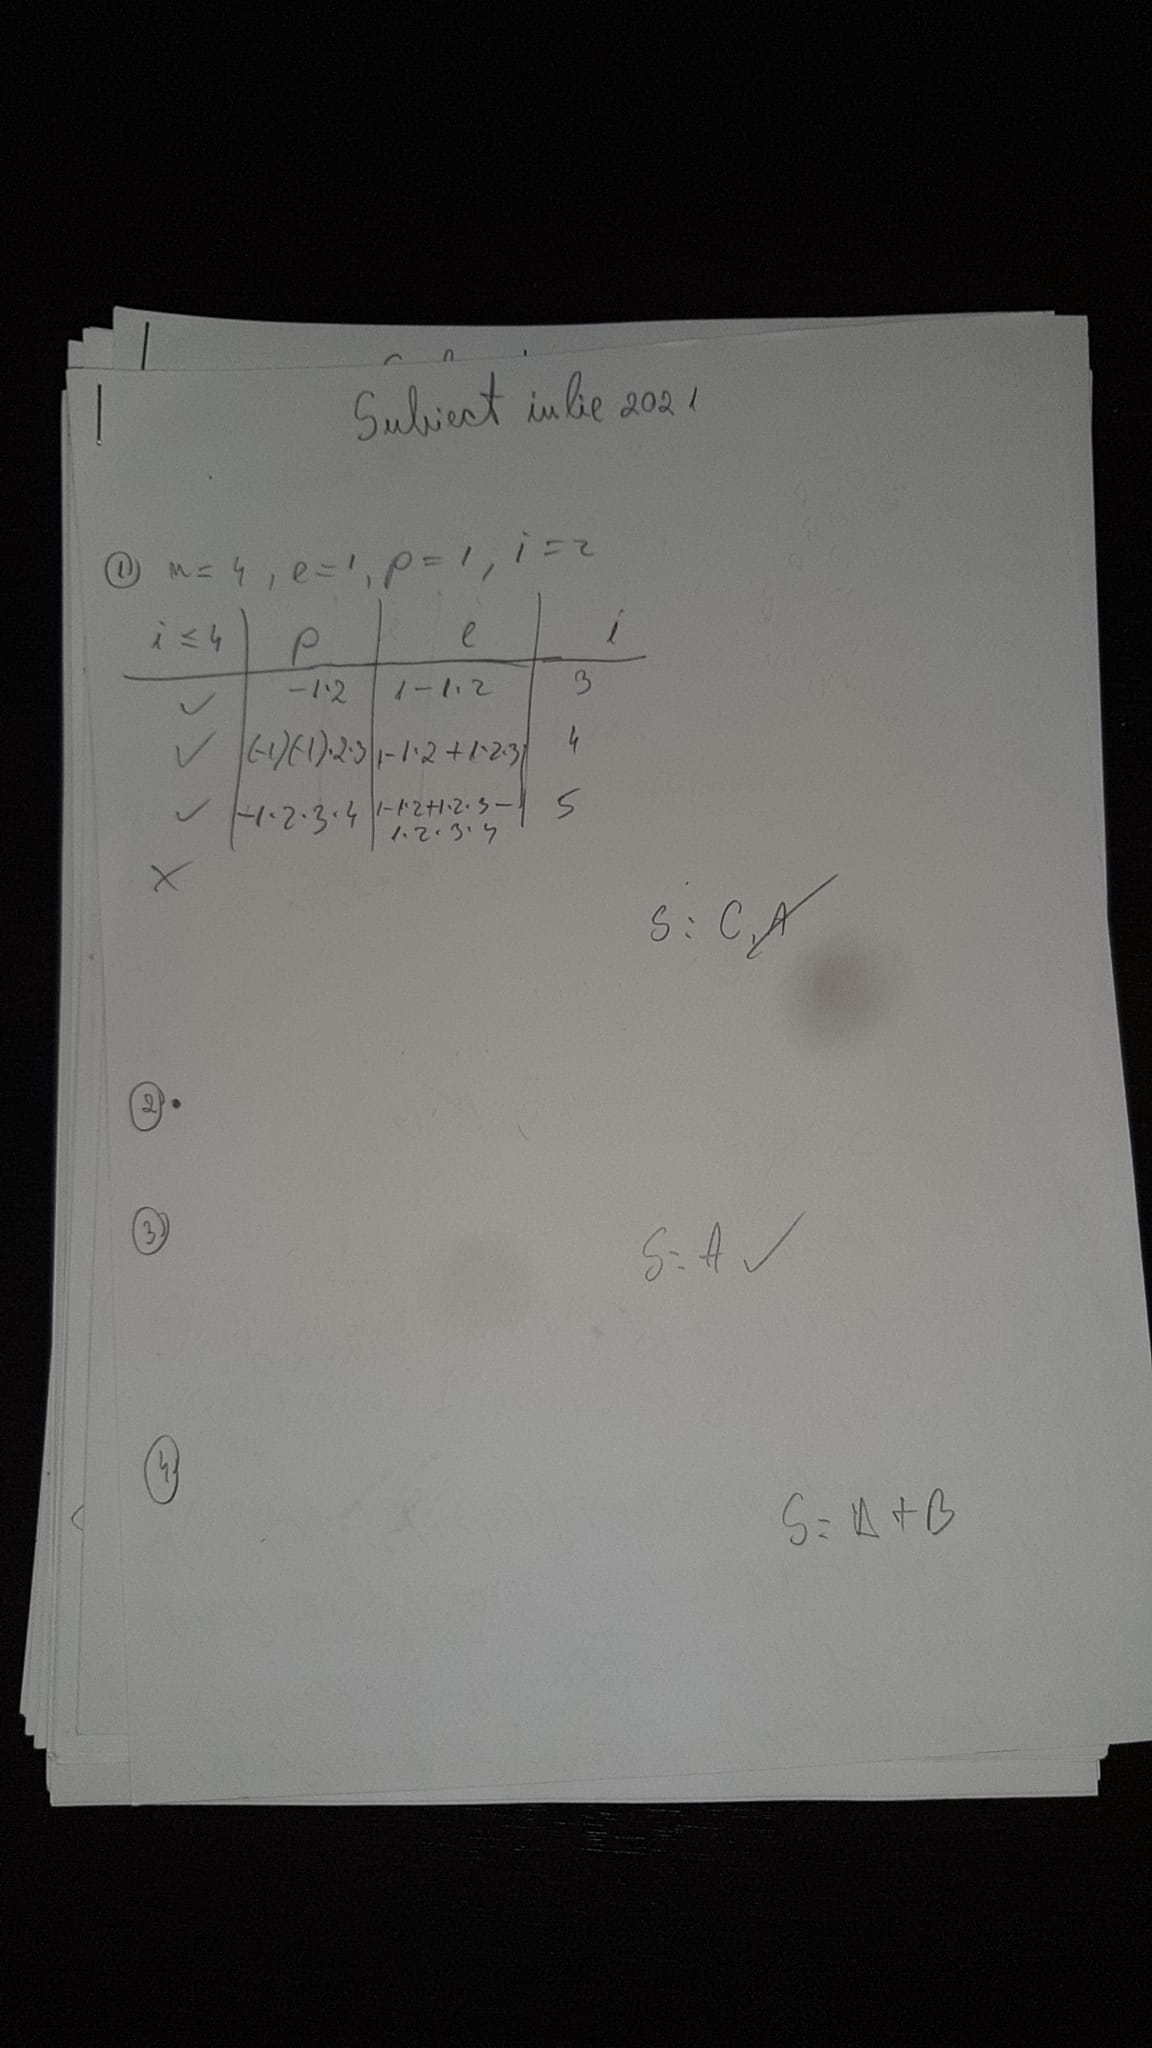 Subiect iulie 2021
① n=4, e=1, p=1, i=2
i≤4 | p | e | i
✓ | -1·2 | 1-1·2 | 3
✓ | (-1)(-1)·2·3 | 1-1·2+1·2·3 | 4
✓ | -1·2·3·4 | 1-1·2+1·2·3- | 5
1·2·3·4
X
S: C, A
②.
③
S: A ✓
④
S= A+B